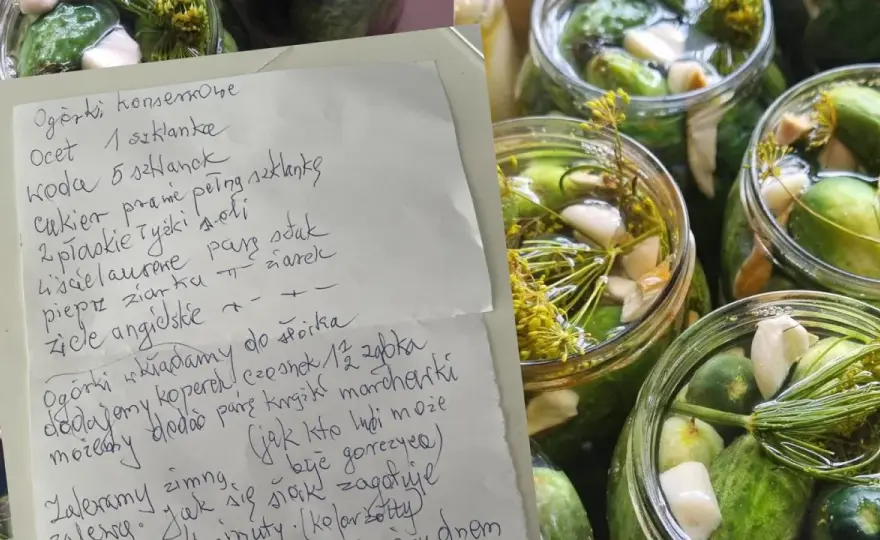 Ogórki konserwowe
Ocet 1 szklanka
woda 5 szklanek
cukier prawie pełną szklankę
2 płaskie łyżki soli
Liście laurowe parę sztuk
pieprz ziarka -"- ziarek
ziele angielskie -"- -"-
Ogórki wkładamy do słoika
dodajemy koperek czosnek 1 1/2 ząbka
możemy dodać parę krążki marchewki
(jak kto lubi może
być gorczyca)
Zalewamy zimną
zalewą. jak się słoik zagotuje
minuty. (kolor żółty)
dnem